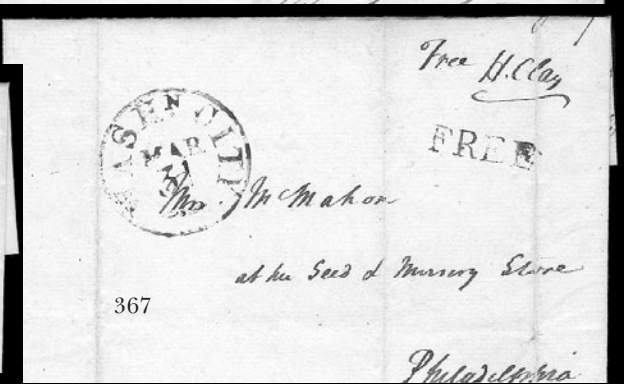 Free H. Clay
FREE
WASHN CITY
MAR
Mrs. McMahon
at her Seed & Nursery Store
367
Philadelphia